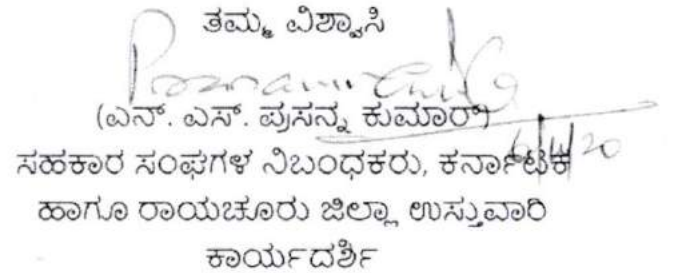 ತಮ್ಮ ವಿಶ್ವಾಸಿ
(ಎನ್. ಎಸ್. ಪ್ರಸನ್ನ ಕುಮಾರ್)
6/11/20
ಸಹಕಾರ ಸಂಘಗಳ ನಿಬಂಧಕರು, ಕರ್ನಾಟಕ
ಹಾಗೂ ರಾಯಚೂರು ಜಿಲ್ಲಾ ಉಸ್ತುವಾರಿ
ಕಾರ್ಯದರ್ಶಿ